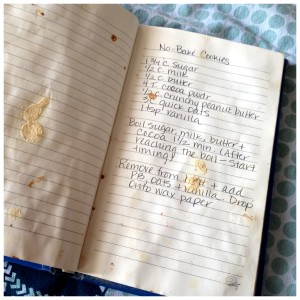 No-Bake Cookies
1 3/4 c sugar
1/2 c milk
1/2 c butter
4 T cocoa pwdr
1/2 c crunchy peanut butter
3 c quick oats
1 tsp vanilla
Boil sugar, milk, butter +
cocoa 1 1/2 min. (After
reaching the boil - start
timing)
Remove from + add
PB, oats + vanilla. Drop
onto wax paper.